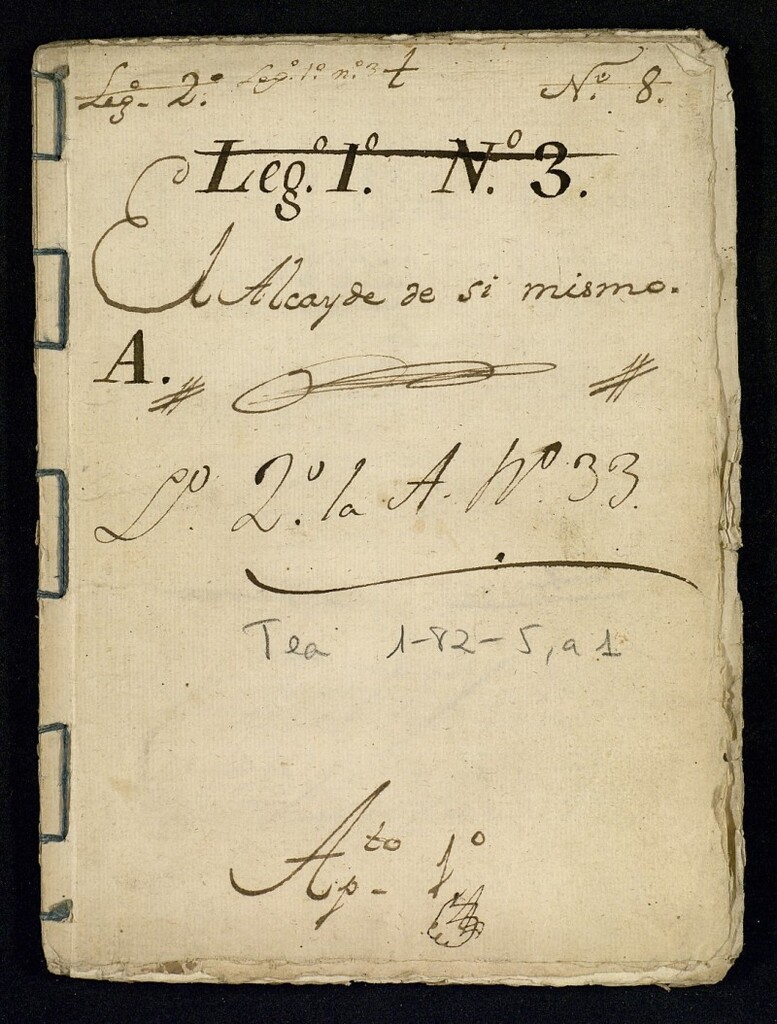 Leg.º 2.º Leg.º 1.º n.º 3 t N.º 8.
Leg.º 1.º N.º 3.
El Alcayde de si mismo.
A.
L.º 2.º la A. Nº 33
Tea 1-82-5, a 1
Ap.to 1º